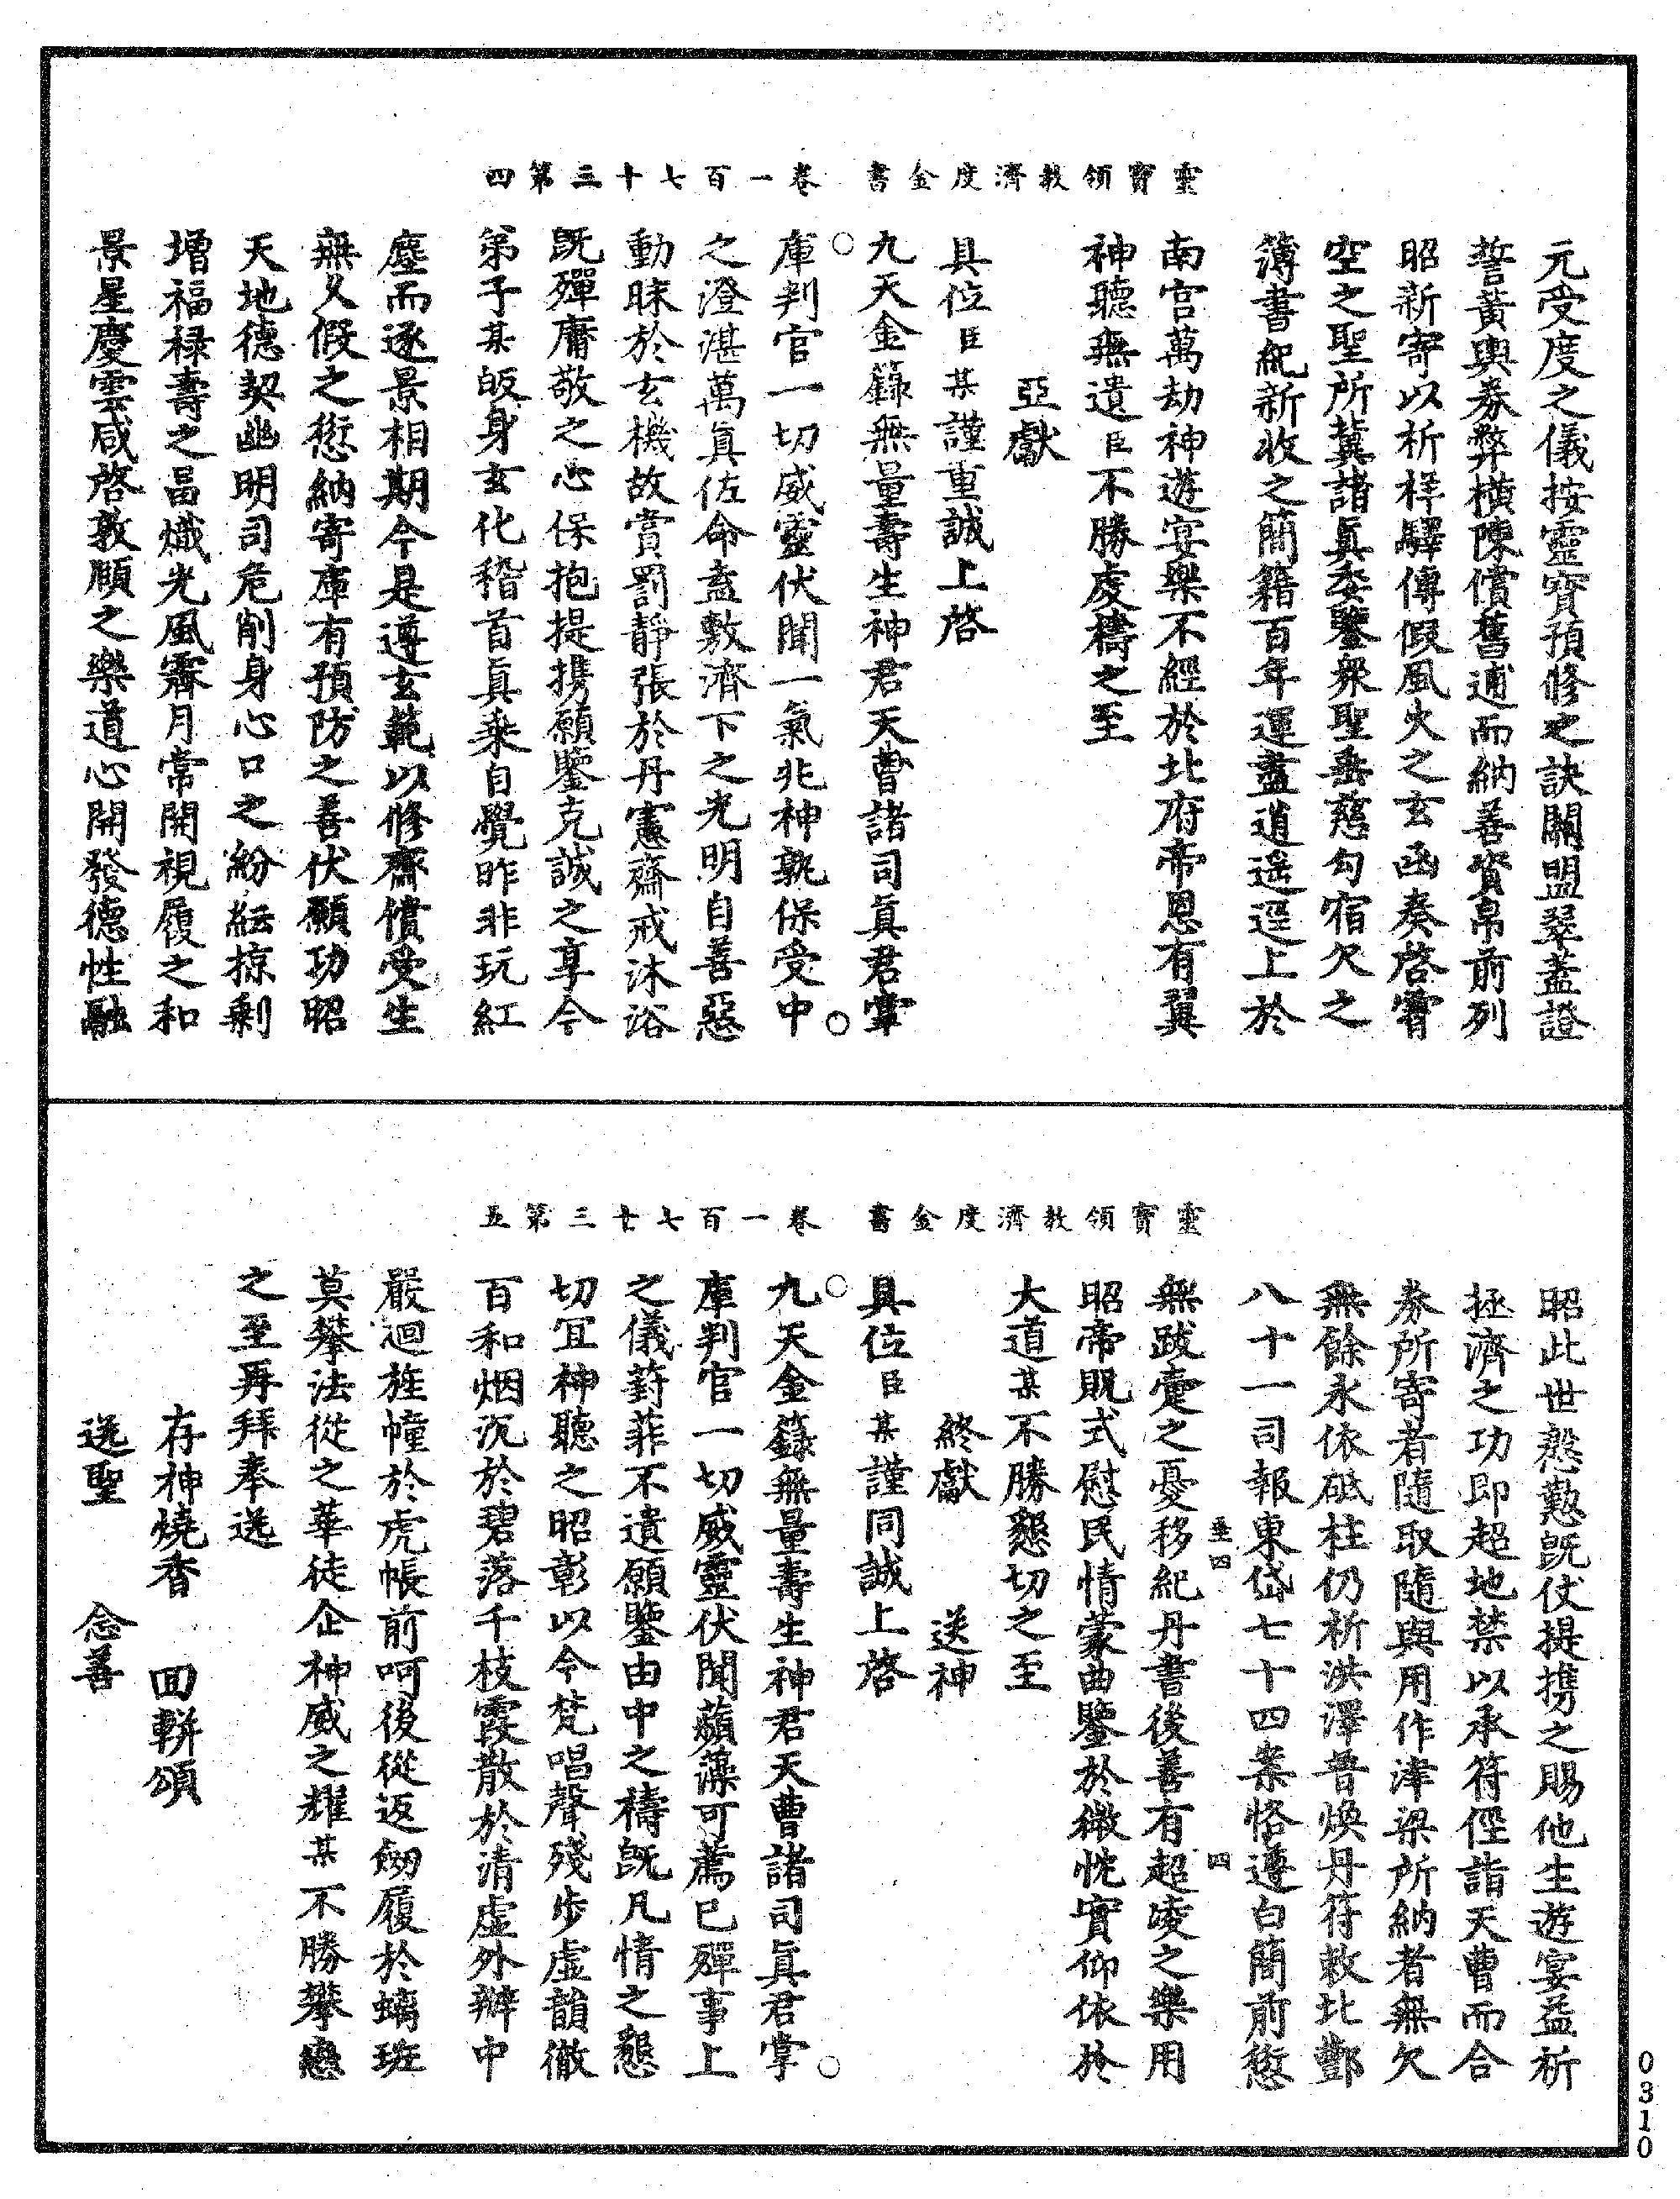 靈寶領教濟度金書　卷一百七十三第四
元受度之儀按靈寶預修之訣關盟翠蓋證
誓黃輿券弊橫陳償舊逋而納善資帛前列
昭新寄以祈祥驛傳假風火之玄函奏啓霄
空之聖所冀諸眞委鑒衆聖垂慈勾宿欠之
簿書紀新收之簡籍百年運盡逍遥逕上於
南宮萬劫神遊宴樂不經於北府帝恩有翼
神聽無遺臣不勝虔禱之至
亞獻
具位臣某謹重誠上啓
九天金籙無量壽生神君天曹諸司眞君掌
庫判官一切威靈伏聞一氣兆神孰保受中
之澄湛萬眞佐命盍敷濟下之光明自善惡
動昧於玄機故賞罰靜張於丹憲齋戒沐浴
旣殫庸敬之心保抱提携願鑒克誠之享今
第子某皈身玄化稽首眞乘自覺昨非玩紅
塵而逐景相期今是遵玄範以修齋償受生
無乂假之愆納寄庫有預防之善伏願功昭
天地德契幽明司危削身心口之紛紜掠剩
增福祿壽之昌熾光風霽月常開視履之和
景星慶雲咸啓敦願之樂道心開發德性融
靈寶領教濟度金書　卷一百七十三第五
昭此世慇懃旣仗提携之賜他生遊宴益祈
拯濟之功即超地禁以承符俓詣天曹而合
券所寄者隨取隨與用作津梁所納者無欠
無餘永依砥柱仍祈洪澤普煥丹符敕北酆
八十一司報東岱七十四案恪遵白簡前愆
無跋疐之憂移紀丹書後善有超凌之樂用
昭帝貺式慰民情蒙曲鑒於微忱實仰依於
大道某不勝懇切之至
終獻　送神
具位臣某謹同誠上啓
九天金籙無量壽生神君天曹諸司眞君掌
庫判官一切威靈伏聞蘋藻可薦已殫事上
之儀葑菲不遺願鑒由中之禱旣凡情之懇
切冝神聽之昭彰以今梵唱聲殘步虛韻徹
百和烟沉於碧落千枝霞散於清虛外辦中
嚴迴旌幢於虎帳前呵後從返劒履於螭班
莫攀法從之華徒企神威之耀某不勝攀戀
之至再拜奉送
存神燒香　回軿頌
送聖　念善
至四　四
0310